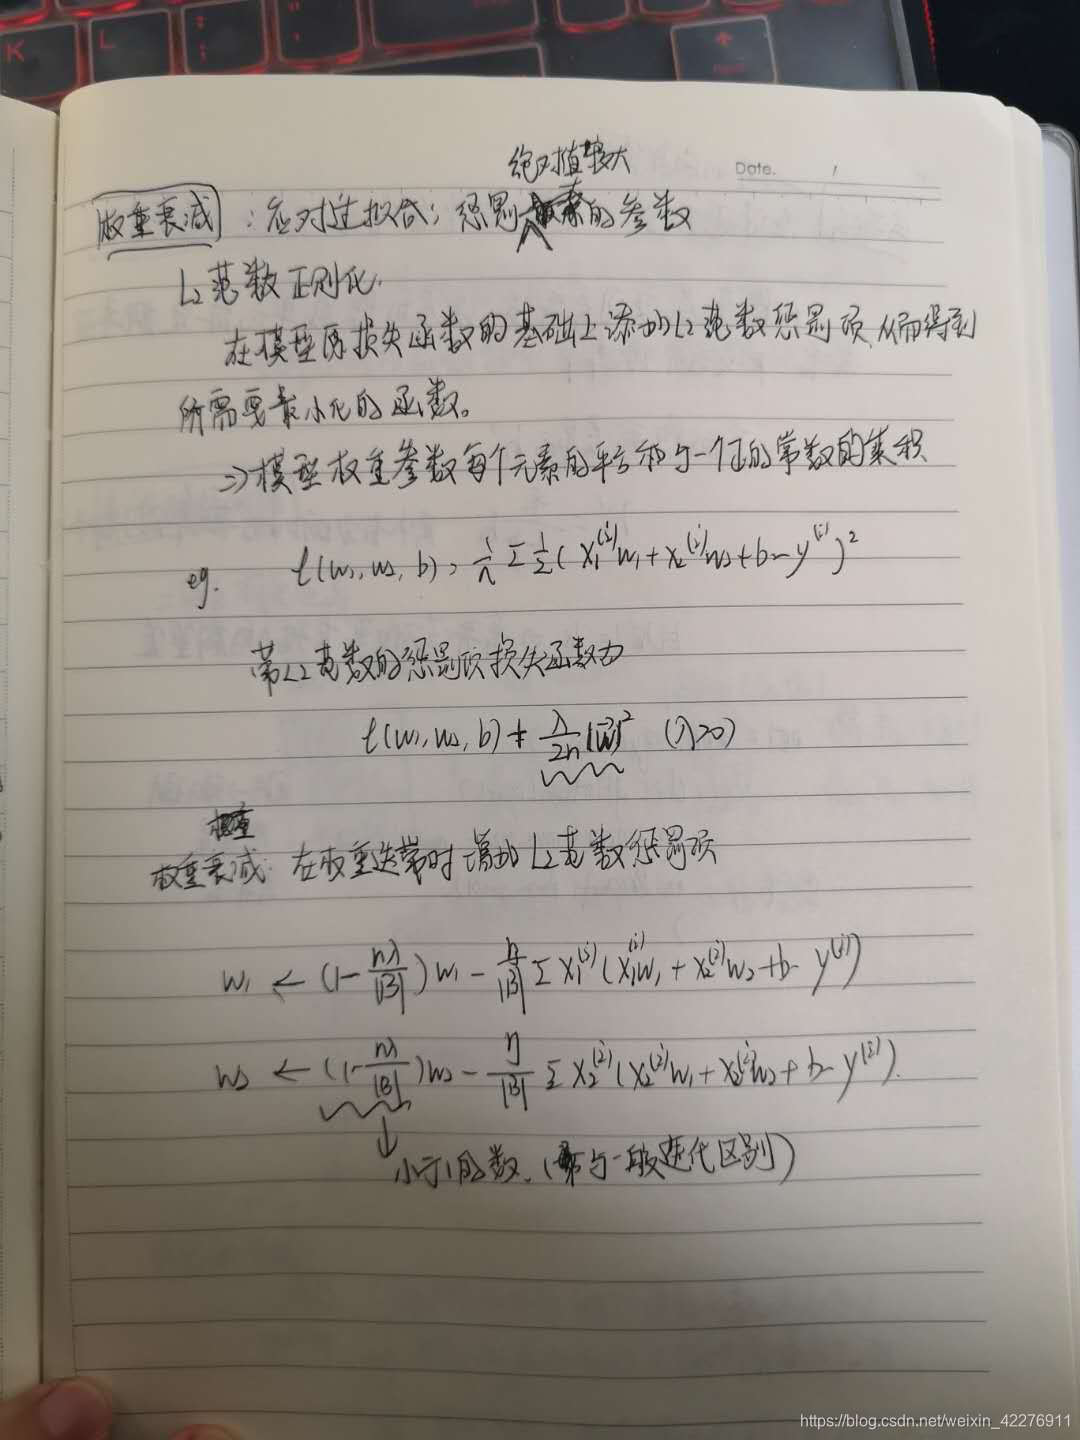 K L
Date.
绝对值较大
权重衰减:应对过拟合;惩罚的参数
L₂范数正则化.
在模型原损失函数的基础上添加L₂范数惩罚项,从而得到
所需要最小化的函数。
⇒模型权重参数每个元素的平方和与一个正的常数的乘积
eg. ℓ(w₁,w₂,b) = 1/n Σ 1/2 (x₁⁽ⁱ⁾w₁ + x₂⁽ⁱ⁾w₂ + b - y⁽ⁱ⁾)²
带L2范数的惩罚项损失函数为
ℓ(w₁,w₂,b) + λ/2n |w⃗|² (λ>0)
权重衰减 在权重迭代时增加L₂范数惩罚项
w₁ ← (1-ηλ/|B|)w₁ - η/|B| Σ x₁⁽ⁱ⁾(x₁⁽ⁱ⁾w₁ + x₂⁽ⁱ⁾w₂ + b - y⁽ⁱ⁾)
w₂ ← (1-ηλ/|B|)w₂ - η/|B| Σ x₂⁽ⁱ⁾(x₂⁽ⁱ⁾w₁ + x₂⁽ⁱ⁾w₂ + b - y⁽ⁱ⁾).
↓
小于1的数.(与一般迭代区别)
https://blog.csdn.net/weixin_42276911